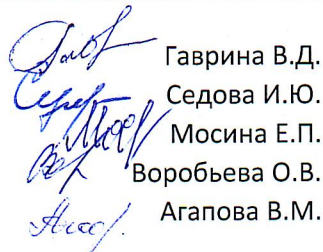 Гаврина В.Д.
Седова И.Ю.
Мосина Е.П.
Воробьева О.В.
Агапова В.М.